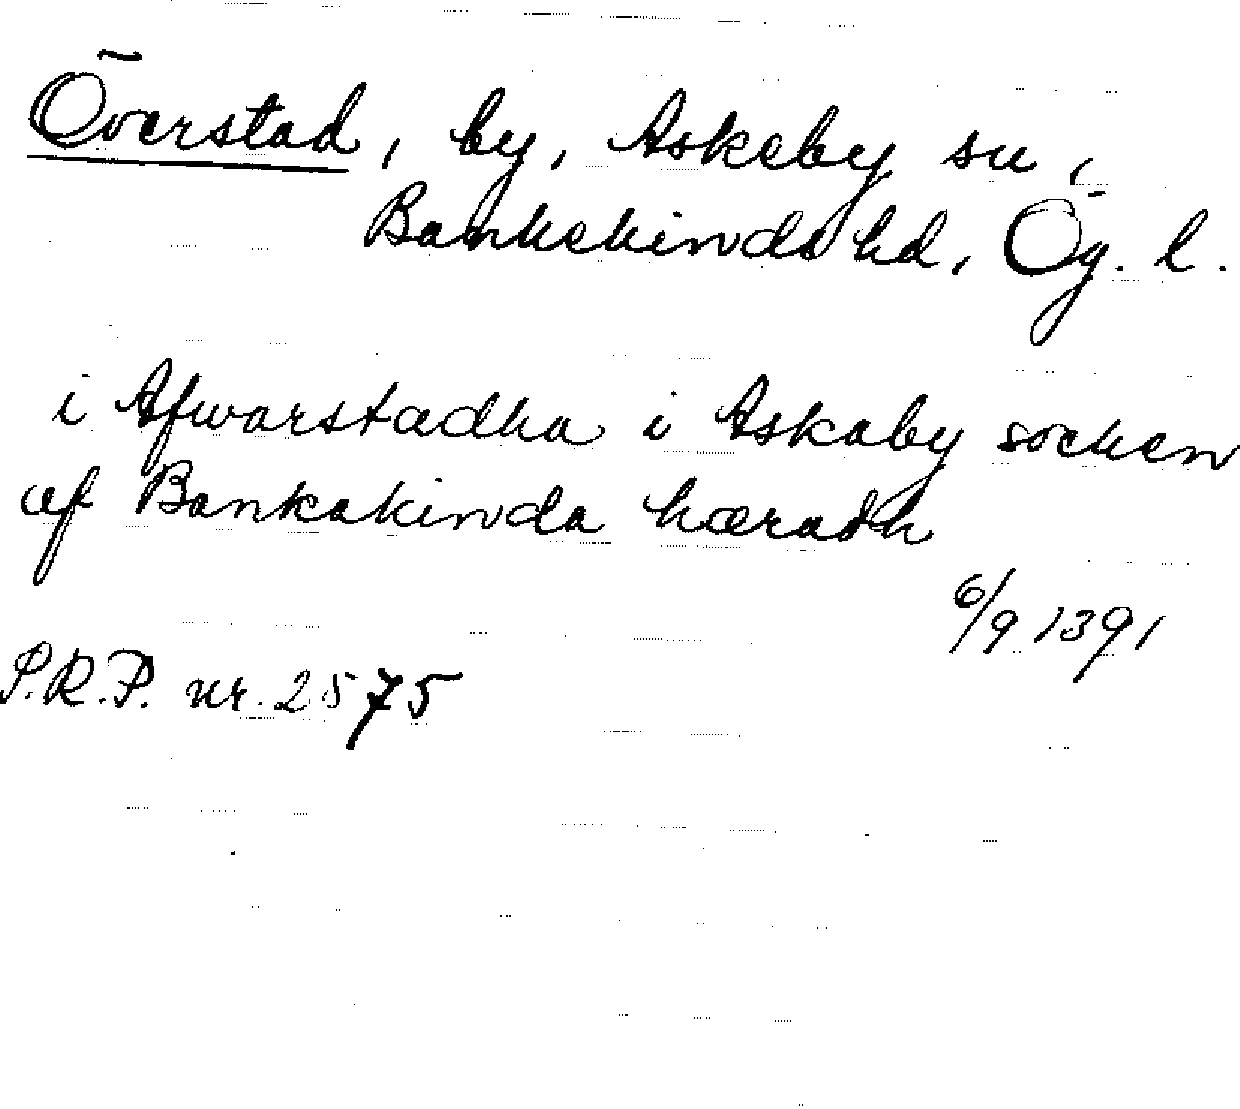 Överstad, by, Askeby sn,
Bankekinds hd, Ög. l.
i Afwarstadha i Askaby sochen
af Bankakinda hæradh
6/9 1391
P.R.P. nr. 2575